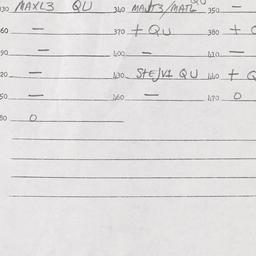 330 MAXL3 QU 340 MANT3/MATL QU 350 —
60 — 370 + QU 380 +
90 — 400 — 410 —
20 — 430 StEJV1 QU 440 + Q
50 — 460 — 470 0
80 0